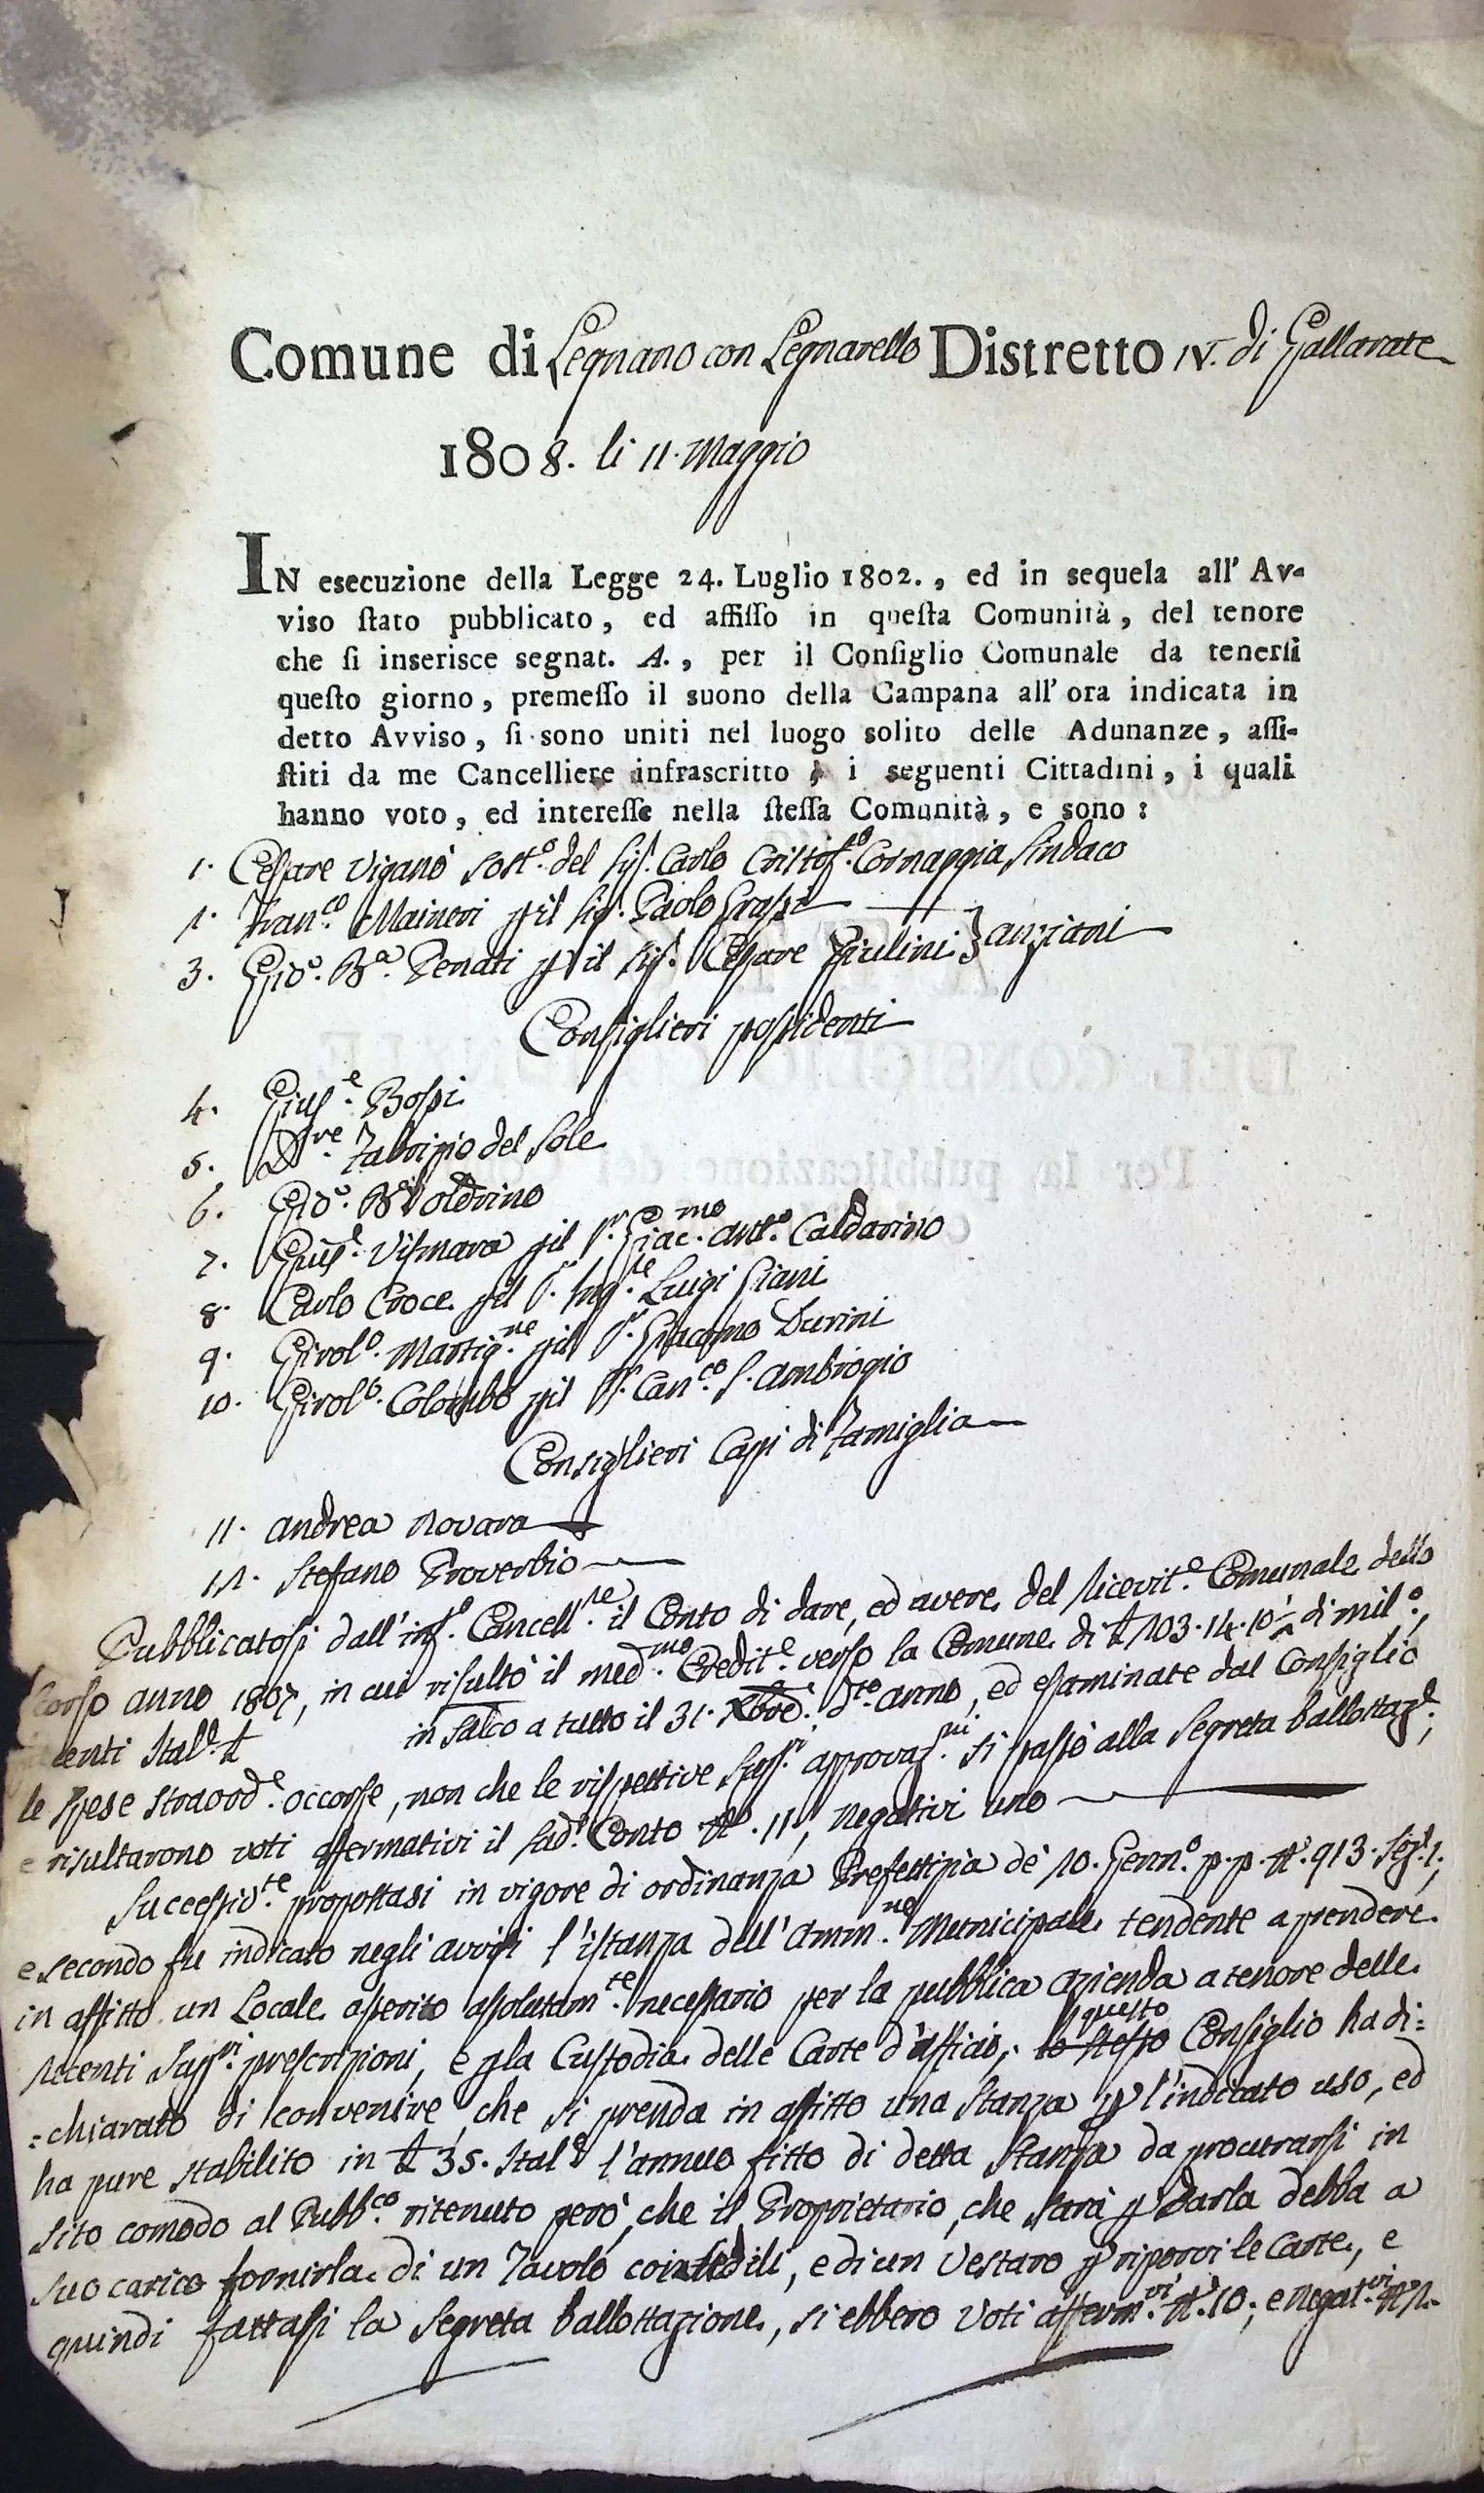 Comune di Legnano con Legnarello Distretto IV. di Gallarate
1808. li 11. Maggio
IN esecuzione della Legge 24. Luglio 1802., ed in sequela all' Av-
viso ſtato pubblicato, ed affiſſo in queſta Comunità, del tenore
che ſi inserisce segnat. A., per il Conſiglio Comunale da tenerſi
queſto giorno, premeſſo il suono della Campana all' ora indicata in
detto Avviso, ſi sono uniti nel luogo solito delle Adunanze, aſſi-
ſtiti da me Cancelliere infrascritto, i seguenti Cittadini, i quali
hanno voto, ed intereſſe nella ſteſſa Comunità, e sono:
1. Cesare Viganò Sost.o del Sig.r Carlo Cristof.o Cornaggia Sindaco
2. Fran.co Maineri p il Sig.r Paolo Crespi
3. Gio. B.a Penati p il Sig.r Cesare Giulini } anziani
Consiglieri possidenti
4. Gius.e Bossi
5. D.re Fabrizio del Sole
6. Gio. B.a Voldrino
7. Gius.e Vismara p il S.r Giac.mo Ant.o Caldarino
8. Carlo Croce p il S.r Ing.re Luigi Giani
9. Girol.o Martig.ne p il S.r Giacomo Durini
10. Girol.o Colombo p il S.r Can.co S. Ambrogio
Consiglieri Capi di Famiglia
11. Andrea Novara
12. Stefano Proverbio
Pubblicatosi dall' inf.o Cancell.re il Conto di dare, ed avere del Ricevit.e Comunale dello
scorso anno 1807, in cui risultò il med.mo Credit.e verso la Comune di £ 103.14.10 di mil.o,
centi Ital.e £ in salco a tutto il 31. Xbre d.to anno, ed esaminate dal Consiglio
le spese straord.e occorse, non che le rispettive Sup.ri approvaz.ni si passò alla Segreta ballottaz.e,
e risultarono voti affermativi il sud.o Conto N.o 11, negativi uno
Successiv.te propostasi in vigore di ordinanza Prefettizia de' 10. Genn.o p.p. N.o 913. Sez.e 1.,
e secondo fu indicato negli avvisi l'istanza dell' Amm.ne Municipale tendente a prendere
in affitto un Locale asserito assolutam.te necessario per la pubblica azienda a tenore delle
recenti Sup.ri prescrizioni, e p la Custodia delle Carte d'ufficio, lo stesso questo Consiglio ha di=
=chiarato di convenire, che si prenda in affitto una Stanza p l'indicato uso, ed
ha pure stabilito in £ 35. Ital.e l'annuo fitto di detta Stanza da procurarsi in
sito comodo al Pubb.co ritenuto però, che il Proprietario, che sarà p darla debba a
suo carico fornirla di un Tavolo coi sedili, e di un Vestaro p riporvi le Carte, e
quindi fattasi la Segreta ballottazione, si ebbero Voti afferm.vi N.o 10., e negat.vi N.o 2.